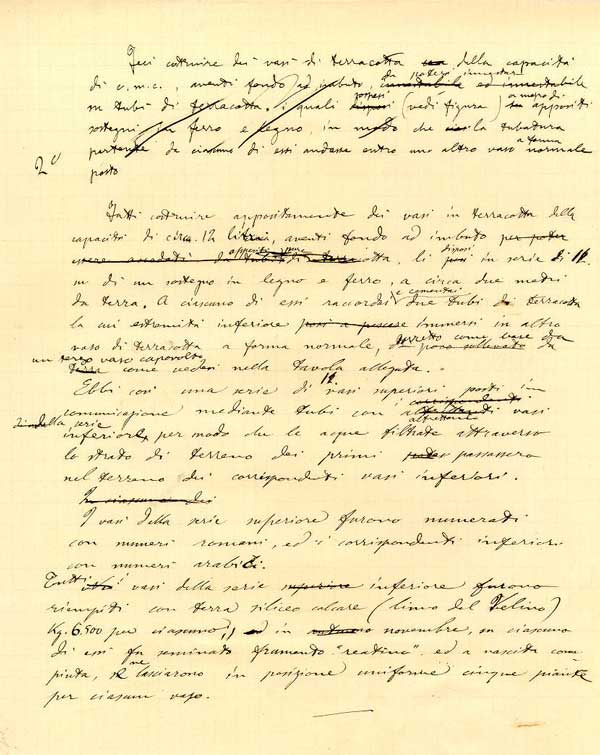 Feci costruire dei vasi di terracotta della capacità
di c.m.c., aventi fondo ad imbuto, da potersi innestare
su tubi di terracotta, i quali sospesi (vedi figura) a mezzo di appositi
sostegni in ferro e legno, in modo che la tubatura
partente da ciascuno di essi andasse entro uno altro vaso a forma normale
posto
2°
Fatti costruire appositamente dei vasi in terracotta della
capacità di circa 12 litri, aventi fondo ad imbuto per poter
essere di terracotta, li disposi in serie di 12
su di un sostegno in legno e ferro, a circa due metri
da terra. A ciascuno di essi raccordai e cementai due tubi di terracotta
la cui estremità inferiore immersi in altro
vaso di terracotta a forma normale, sorretto come base da
un terzo vaso capovolto
come vedesi nella tavola allegata.
Ebbi così una serie di 12 vasi superiori posti in
comunicazione mediante tubi con altrettanti vasi
della serie
inferiore, per modo che le acque filtrate attraverso
lo strato di terreno dei primi passassero
nel terreno dei corrispondenti vasi inferiori.
In ciascuno dei
I vasi della serie superiore furono numerati
con numeri romani, ed i corrispondenti inferiori
con numeri arabici.
Tutti i vasi della serie superiore inferiore furono
riempiti con terra siliceo calcare (limo del Velino)
Kg. 6.500 per ciascuno, ed in novembre, in ciascuno
di essi fu seminato frumento "reatino" ed a nascita com-
piuta, se ne lasciarono in posizione uniforme cinque piante
per ciascun vaso.